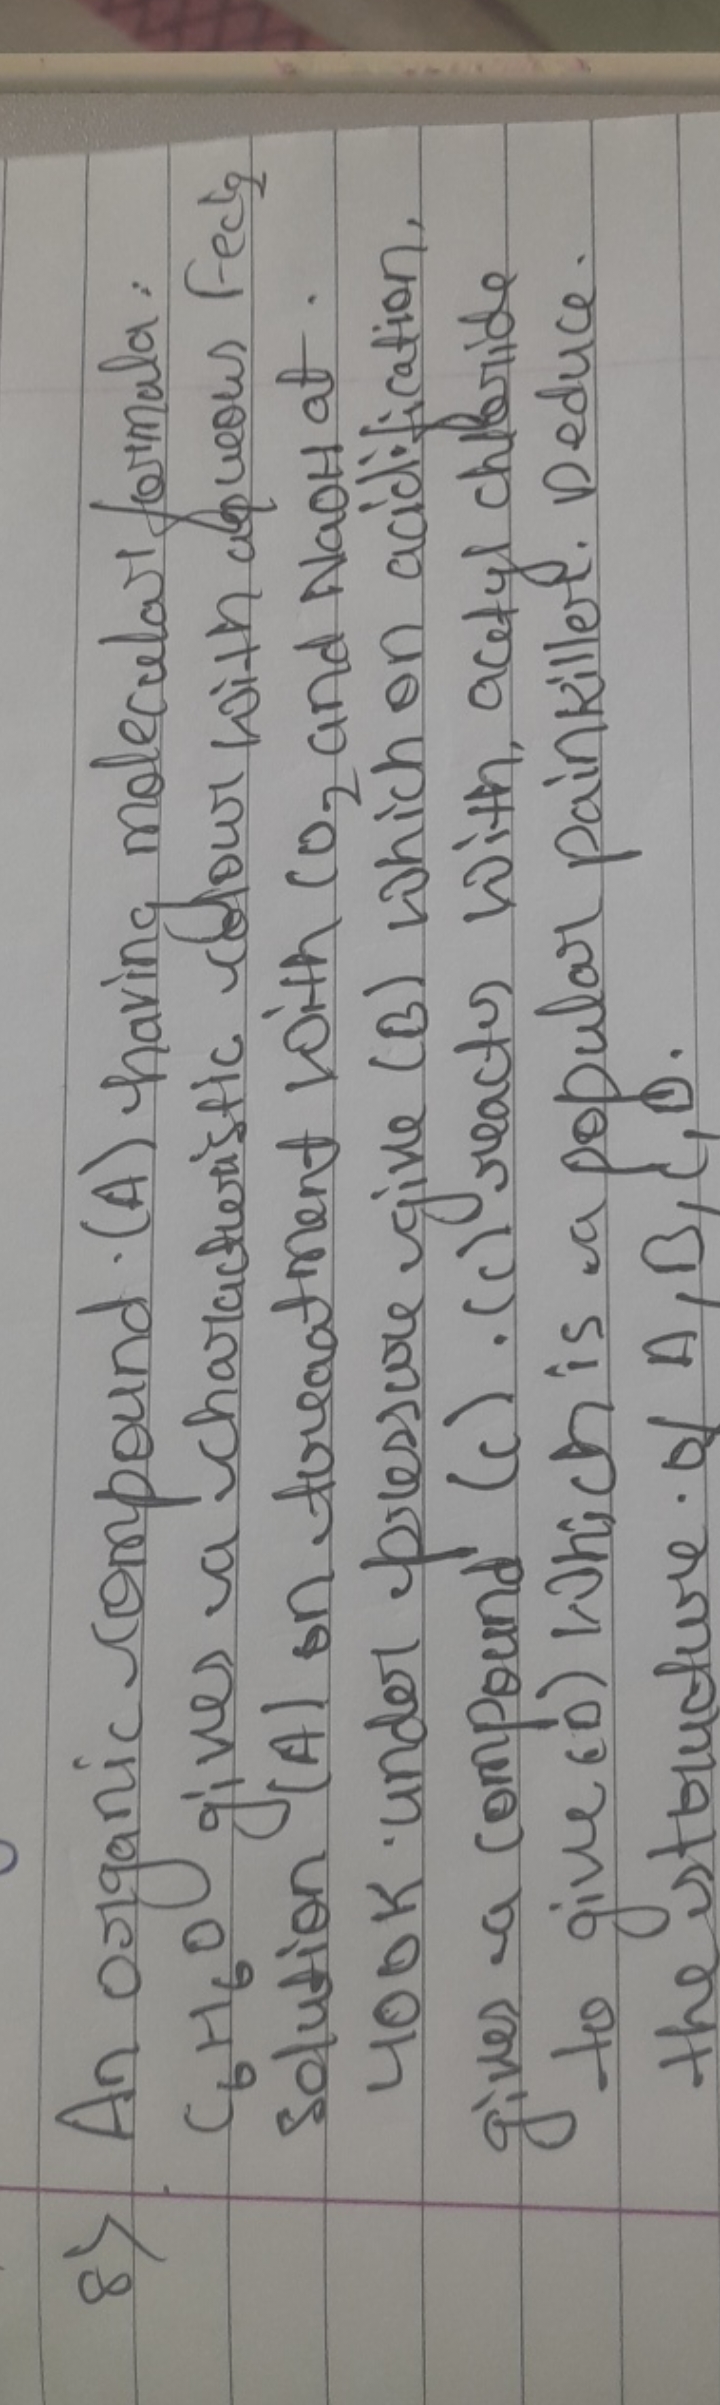 8) An organic compound (A) having molecular formula.
C6H6O gives a characteristic colour with aqueous FeCl3
Solution (A) on treatment with CO2 and NaOH at.
400K under pressure give (B) which on acidification,
gives a compound (C). (C) reacts with, acetyl chloride
to give (D) which is a popular painkiller. Deduce.
the structure of A, B, C, D.